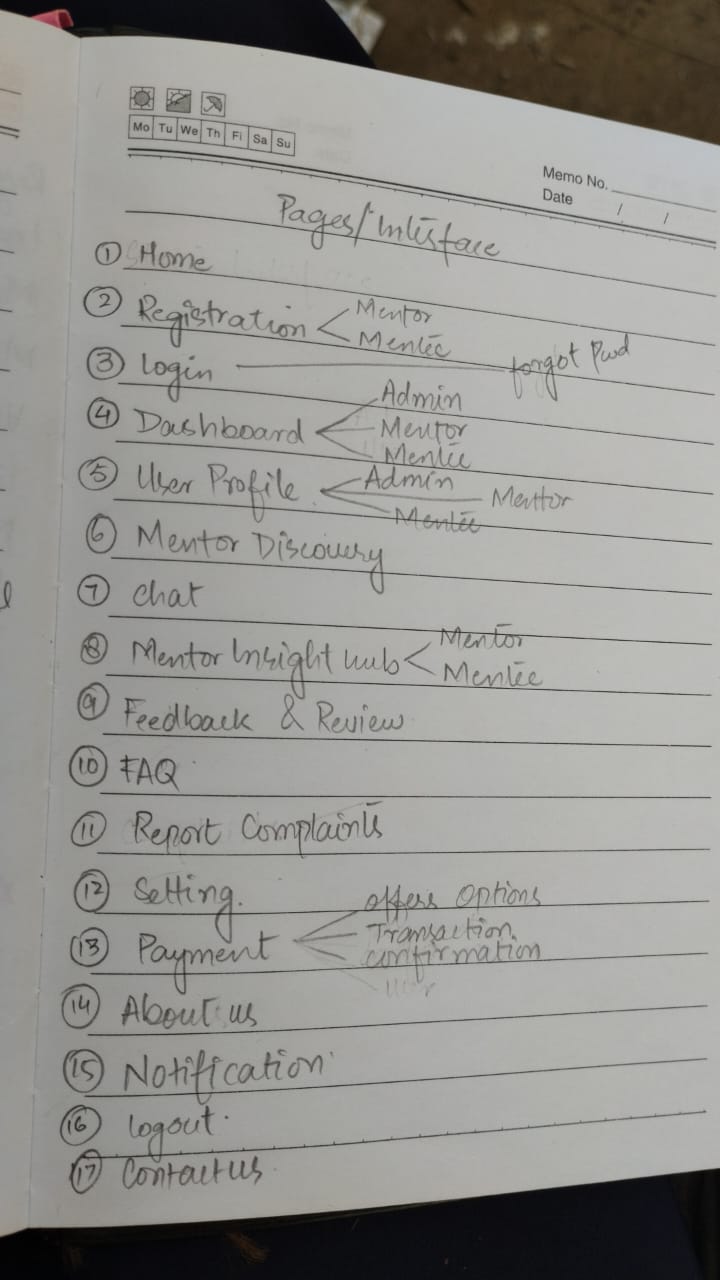 Mo Tu We Th Fi Sa Su
Memo No.
Date / /
Pages/Interface
① Home
② Registration < Mentor
Mentee
③ Login — forgot Pwd
④ Dashboard < Admin
Mentor
Mentee
⑤ User Profile < Admin
Mentor
Mentee
⑥ Mentor Discovery
⑦ chat
⑧ Mentor Insight hub < Mentor
Mentee
⑨ Feedback & Review
⑩ FAQ
⑪ Report Complaints
⑫ Setting.
⑬ Payment < offers Options
Transaction
confirmation
⑭ About us
⑮ Notification
⑯ logout.
⑰ Contact us